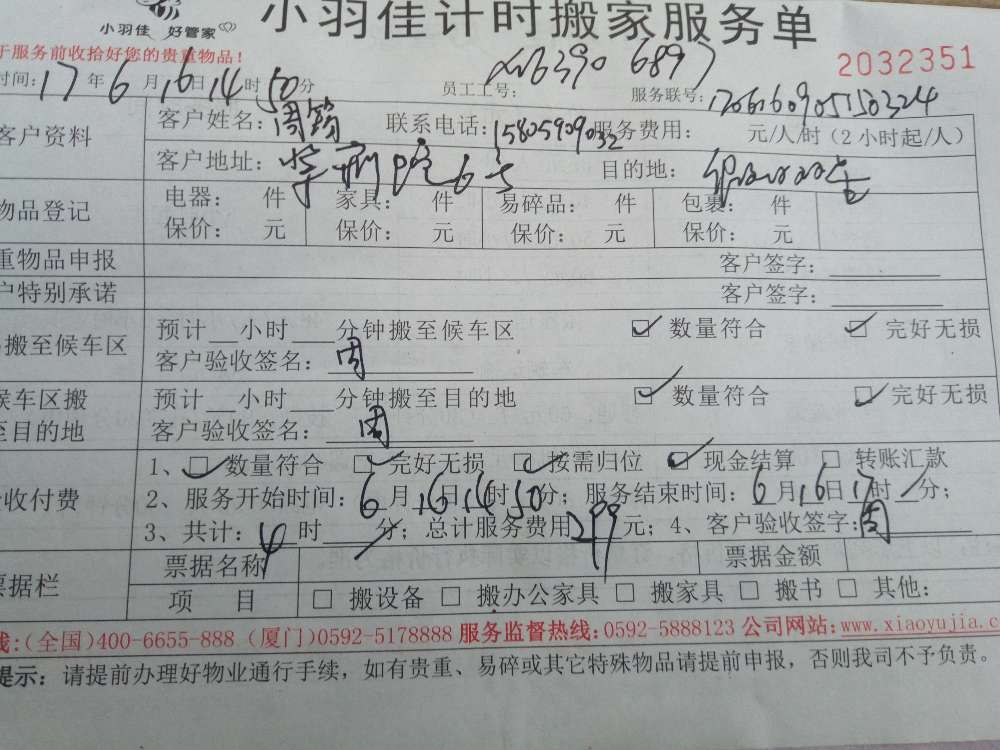 小羽佳 好管家
小羽佳计时搬家服务单
于服务前收拾好您的贵重物品！
2032351
时间：17年6月16日14时50分 员工工号： 服务联号：
客户资料 客户姓名：周 联系电话：15805909032 服务费用： 元/人/时（2小时起/人）
客户地址： 目的地：
物品登记 电器： 件 家具： 件 易碎品： 件 包裹： 件
保价： 元 保价： 元 保价： 元 保价： 元
重物品申报 客户签字：
户特别承诺 客户签字：
搬至候车区 预计__小时___分钟搬至候车区 ☑ 数量符合 ☑ 完好无损
客户验收签名：周
候车区搬至目的地 预计__小时___分钟搬至目的地 ☑ 数量符合 ☑ 完好无损
客户验收签名：周
收付费 1、☑数量符合 ☑完好无损 ☑按需归位 ☑现金结算 □ 转账汇款
2、服务开始时间：6月16日14时50分；服务结束时间：6月16日17时/分；
3、共计：4时/分；总计服务费用299元；4、客户验收签字：周
票据栏 票据名称 票据金额
项 目 □ 搬设备 □ 搬办公家具 □ 搬家具 □ 搬书 □ 其他：
线：（全国）400-6655-888（厦门）0592-5178888 服务监督热线：0592-5888123 公司网站：www.xiaoyujia.c
提示：请提前办理好物业通行手续，如有贵重、易碎或其它特殊物品请提前申报，否则我司不予负责。